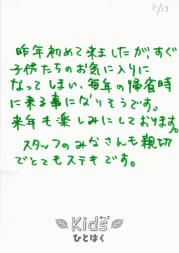 7/13
昨年初めて来ましたが、すぐ
子供たちのお気に入りに
なってしまい、毎年の帰省時
に来る事になりそうです。
来年も楽しみにしております。
スタッフのみなさんも親切
でとてもステキです。
キッズ
Kids
ひとはく